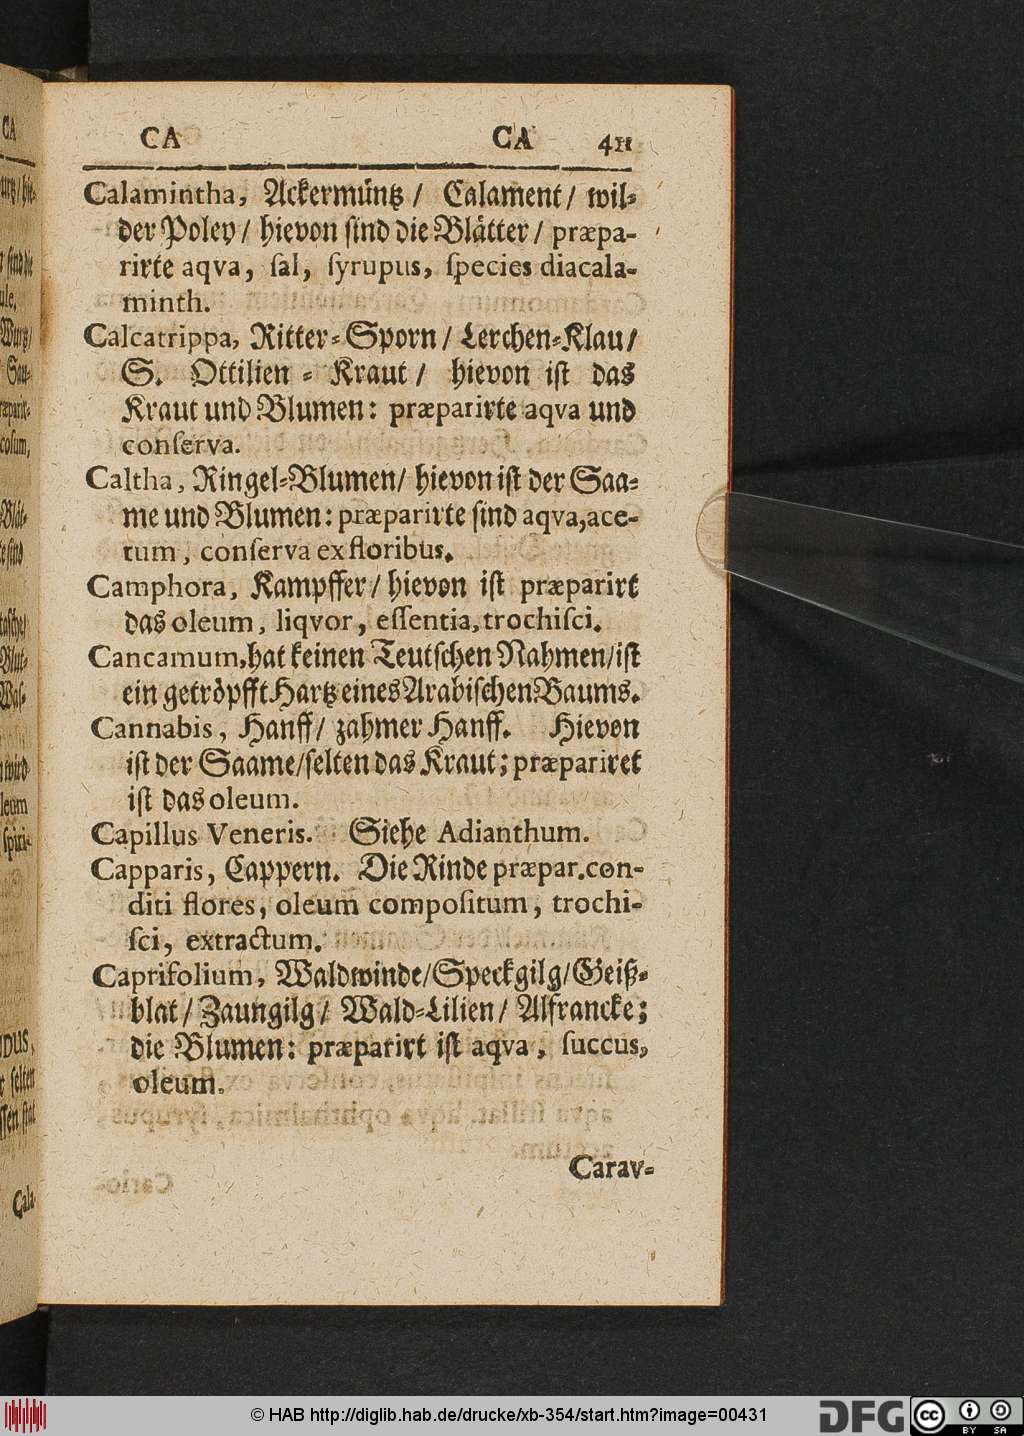 CA CA 411
Calamintha, Ackermüntz / Calament / wil-
der Poley / hievon sind die Blätter / præpa-
rirte aqva, sal, syrupus, species diacala-
minth.
Calcatrippa, Ritter-Sporn / Lerchen-Klau /
S. Ottilien-Kraut / hievon ist das
Kraut und Blumen: præparirte aqva und
conserva.
Caltha, Ringel-Blumen / hievon ist der Saa-
me und Blumen: præparirte sind aqva, ace-
tum, conserva ex floribus.
Camphora, Kampffer / hievon ist præparirt
das oleum, liqvor, essentia, trochisci.
Cancamum, hat keinen Teutschen Nahmen / ist
ein getröpfft Hartz eines Arabischen Baums.
Cannabis, Hanff / zahmer Hanff. Hievon
ist der Saame / selten das Kraut; præpariret
ist das oleum.
Capillus Veneris. Siehe Adianthum.
Capparis, Cappern. Die Rinde præpar. con-
diti flores, oleum compositum, trochi-
sci, extractum.
Caprifolium, Waldwinde / Speckgilg / Geiß-
blat / Zaungilg / Wald-Lilien / Alfrancke;
die Blumen: præparirt ist aqva, succus,
oleum.
Carav-
© HAB http://diglib.hab.de/drucke/xb-354/start.htm?image=00431
DFG
cc BY SA